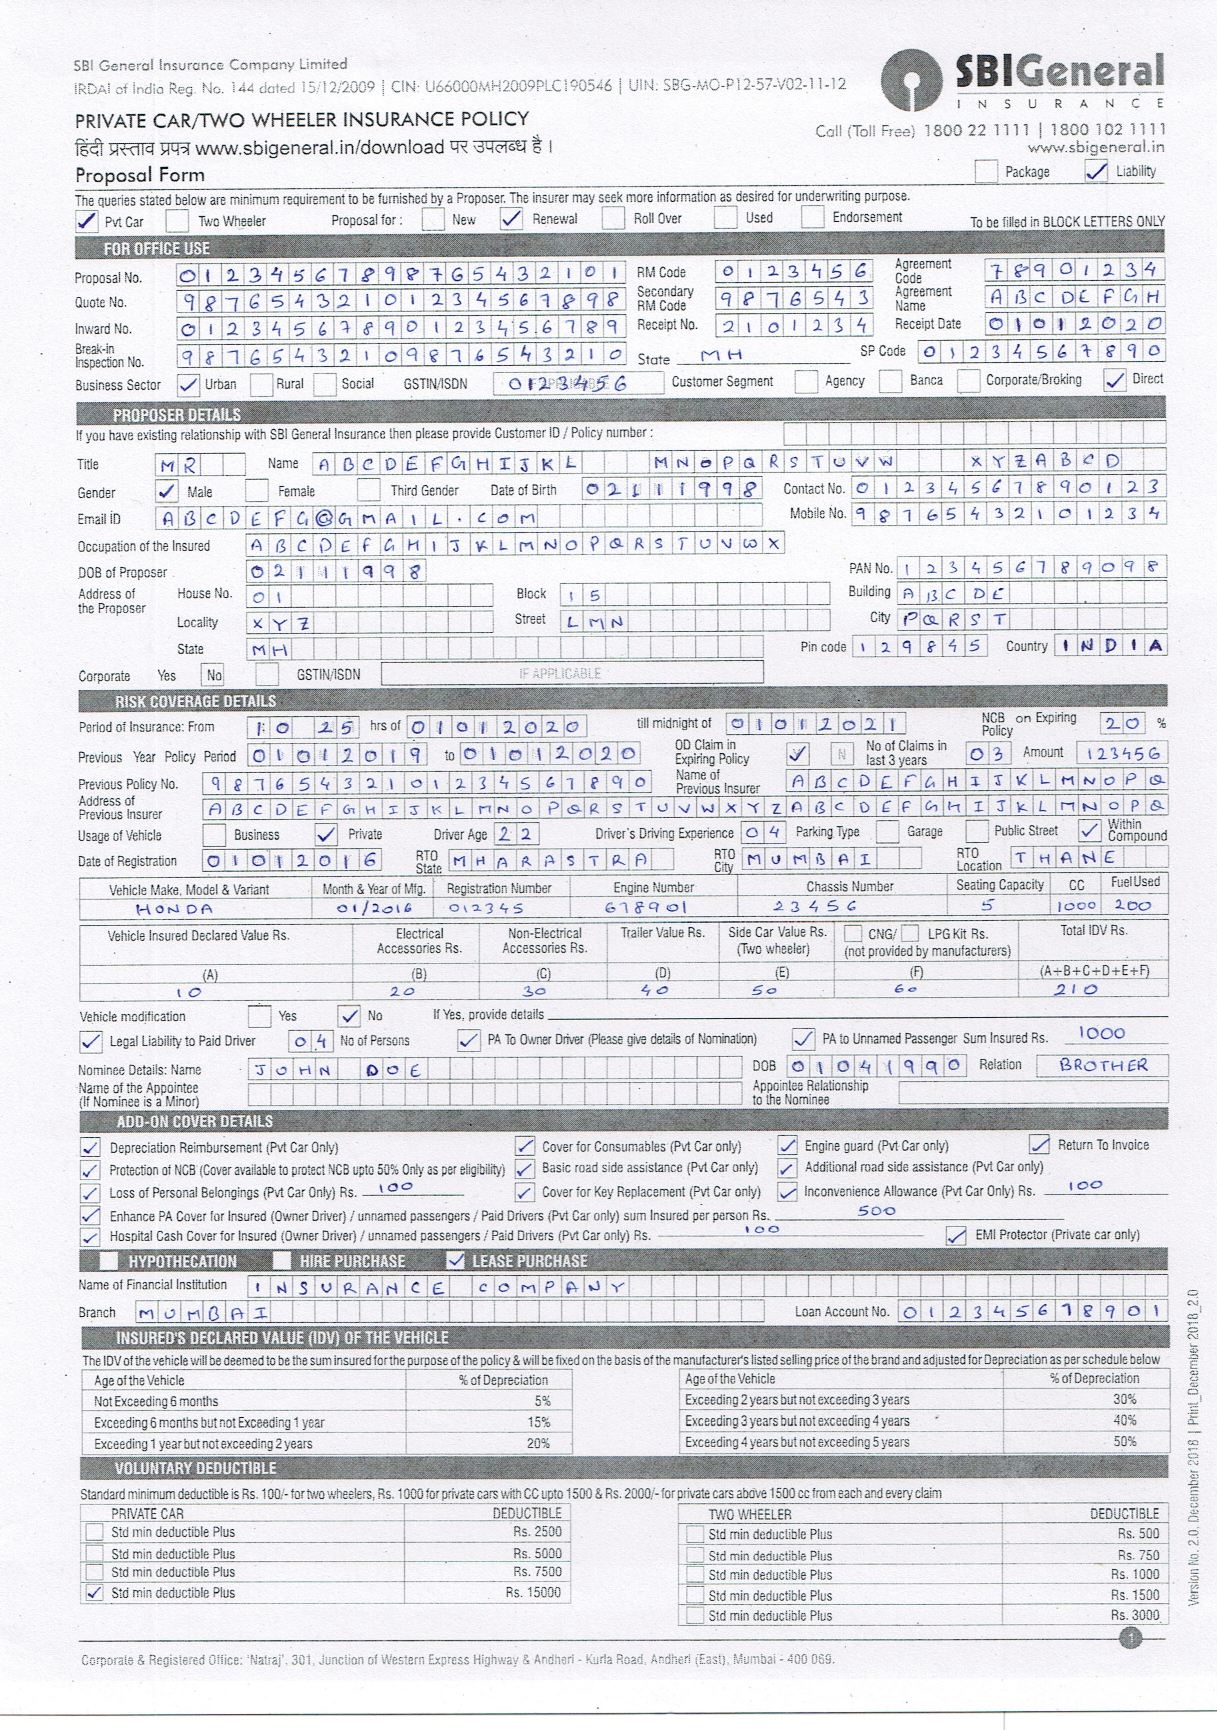 SBI General Insurance Company Limited
IRDAI of India Reg. No. 144 dated 15/12/2009 | CIN: U66000MH2009PLC190546 | UIN: SBG-MO-P12-57-V02-11-12
SBIGeneral
INSURANCE
PRIVATE CAR/TWO WHEELER INSURANCE POLICY
Call (Toll Free) 1800 22 1111 | 1800 102 1111
हिंदी प्रस्ताव प्रपत्र www.sbigeneral.in/download पर उपलब्ध है।
www.sbigeneral.in
Proposal Form Package Liability
The queries stated below are minimum requirement to be furnished by a Proposer. The insurer may seek more information as desired for underwriting purpose.
Pvt Car Two Wheeler Proposal for : New Renewal Roll Over Used Endorsement To be filled in BLOCK LETTERS ONLY
FOR OFFICE USE
Proposal No. 01234567898765432101 RM Code 0123456 Agreement Code 78901234
Quote No. 98765432101234567898 Secondary RM Code 9876543 Agreement Name ABCDEFGH
Inward No. 01234567890123456789 Receipt No. 2101234 Receipt Date 01012020
Break-in Inspection No. 98765432109876543210 State MH SP Code 01234567890
Business Sector Urban Rural Social GSTIN/ISDN 0123456 Customer Segment Agency Banca Corporate/Broking Direct
PROPOSER DETAILS
If you have existing relationship with SBI General Insurance then please provide Customer ID / Policy number :
Title MR Name ABCDEFGHIJKL MNOPQRSTUVW XYZABCD
Gender Male Female Third Gender Date of Birth 02111998 Contact No. 01234567890123
Email ID ABCDEFG@GMAIL.COM Mobile No. 98765432101234
Occupation of the Insured ABCDEFGHIJKLMNOPQRSTUVWX
DOB of Proposer 02111998 PAN No. 123456789098
Address of the Proposer House No. 01 Block 15 Building ABCDE
Locality XYZ Street LMN City PQRST
State MH Pin code 129845 Country INDIA
Corporate Yes No GSTIN/ISDN IF APPLICABLE
RISK COVERAGE DETAILS
Period of Insurance: From 10 25 hrs of 01012020 till midnight of 01012021 NCB on Expiring Policy 20 %
Previous Year Policy Period 01012019 to 01012020 OD Claim in Expiring Policy N No of Claims in last 3 years 03 Amount 123456
Previous Policy No. 98765432101234567890 Name of Previous Insurer ABCDEFGHIJKLMNOPQ
Address of Previous Insurer ABCDEFGHIJKLMNOPQRSTUVWXYZABCDEFGHIJKLMNOPQ
Usage of Vehicle Business Private Driver Age 22 Driver's Driving Experience 04 Parking Type Garage Public Street Within Compound
Date of Registration 01012016 RTO State MHARASTRA RTO City MUMBAI RTO Location THANE
Vehicle Make, Model & Variant Month & Year of Mfg. Registration Number Engine Number Chassis Number Seating Capacity CC Fuel Used
HONDA 01/2016 012345 678901 23456 5 1000 200
Vehicle Insured Declared Value Rs. Electrical Accessories Rs. Non-Electrical Accessories Rs. Trailer Value Rs. Side Car Value Rs. (Two wheeler) CNG/ LPG Kit Rs. (not provided by manufacturers) Total IDV Rs.
(A) (B) (C) (D) (E) (F) (A+B+C+D+E+F)
10 20 30 40 50 60 210
Vehicle modification Yes No If Yes, provide details
Legal Liability to Paid Driver 04 No of Persons PA To Owner Driver (Please give details of Nomination) PA to Unnamed Passenger Sum Insured Rs. 1000
Nominee Details: Name JOHN DOE DOB 01041990 Relation BROTHER
Name of the Appointee (If Nominee is a Minor) Appointee Relationship to the Nominee
ADD-ON COVER DETAILS
Depreciation Reimbursement (Pvt Car Only) Cover for Consumables (Pvt Car only) Engine guard (Pvt Car only) Return To Invoice
Protection of NCB (Cover available to protect NCB upto 50% Only as per eligibility) Basic road side assistance (Pvt Car only) Additional road side assistance (Pvt Car only)
Loss of Personal Belongings (Pvt Car Only) Rs. 100 Cover for Key Replacement (Pvt Car only) Inconvenience Allowance (Pvt Car Only) Rs. 100
Enhance PA Cover for Insured (Owner Driver) / unnamed passengers / Paid Drivers (Pvt Car only) sum Insured per person Rs. 500
Hospital Cash Cover for Insured (Owner Driver) / unnamed passengers / Paid Drivers (Pvt Car only) Rs. 100 EMI Protector (Private car only)
HYPOTHECATION HIRE PURCHASE LEASE PURCHASE
Name of Financial Institution INSURANCE COMPANY
Branch MUMBAI Loan Account No. 012345678901
INSURED'S DECLARED VALUE (IDV) OF THE VEHICLE
The IDV of the vehicle will be deemed to be the sum insured for the purpose of the policy & will be fixed on the basis of the manufacturer's listed selling price of the brand and adjusted for Depreciation as per schedule below
Age of the Vehicle % of Depreciation Age of the Vehicle % of Depreciation
Not Exceeding 6 months 5% Exceeding 2 years but not exceeding 3 years 30%
Exceeding 6 months but not Exceeding 1 year 15% Exceeding 3 years but not exceeding 4 years 40%
Exceeding 1 year but not exceeding 2 years 20% Exceeding 4 years but not exceeding 5 years 50%
VOLUNTARY DEDUCTIBLE
Standard minimum deductible is Rs. 100/- for two wheelers, Rs. 1000 for private cars with CC upto 1500 & Rs. 2000/- for private cars above 1500 cc from each and every claim
PRIVATE CAR DEDUCTIBLE TWO WHEELER DEDUCTIBLE
Std min deductible Plus Rs. 2500 Std min deductible Plus Rs. 500
Std min deductible Plus Rs. 5000 Std min deductible Plus Rs. 750
Std min deductible Plus Rs. 7500 Std min deductible Plus Rs. 1000
Std min deductible Plus Rs. 15000 Std min deductible Plus Rs. 1500
Std min deductible Plus Rs. 3000
1
Corporate & Registered Office: 'Natraj', 301, Junction of Western Express Highway & Andheri - Kurla Road, Andheri (East), Mumbai - 400 069.
Version No. 2.0, December 2018 | Print_December 2018_2.0